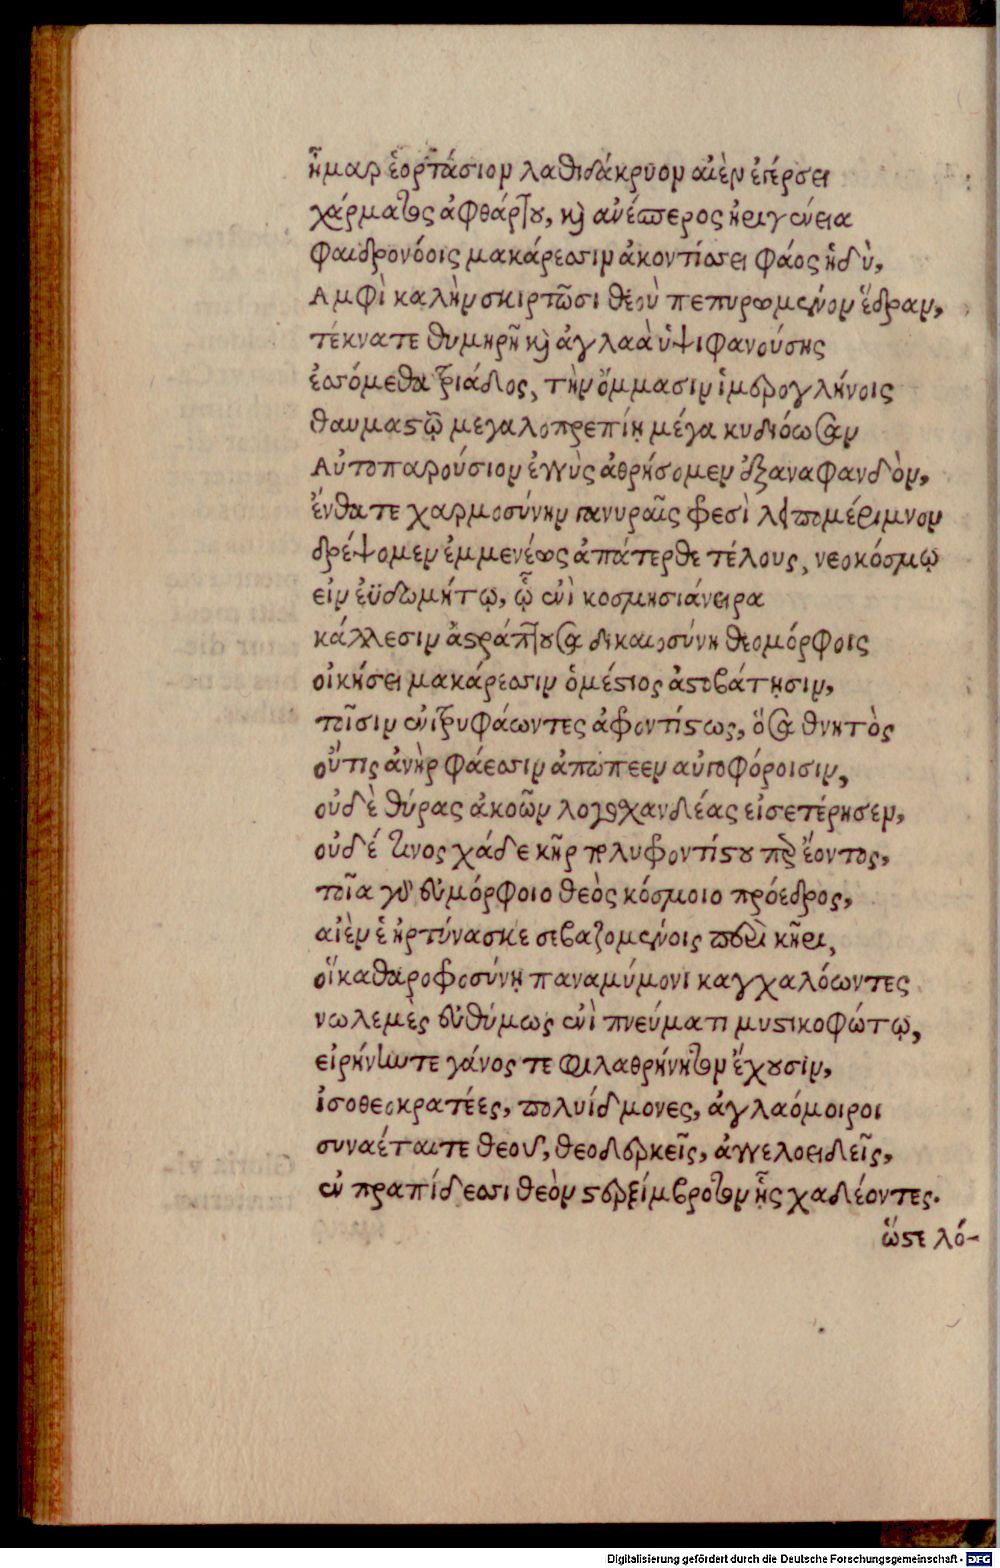 ἦμαρ ἑορτάσιον λαθιδάκρυον αἰὲν ἐπέρσει
χάρματος ἀφθάρτου, καὶ ἀνέσπερος ἠριγένεια
φαιδρονόοις μακάρεσσιν ἀκοντίσσει φάος ἡδὺ,
Ἀμφὶ καλὴν σκιρτῶσι θεοῦ πεπυρωμένον ἕδραν,
τέκνατε θυμηρῆ καὶ ἀγλαὰ ὑψιφανούσης
ἐσσόμεθα τριάδος, τὴν ὄμμασιν ἱμβρογλήνοις
θαυμαστῷ μεγαλοπρεπίῃ μέγα κυδιόωσαν
Αὐτοπαρούσιον ἐγγὺς ἀθρήσομεν ἐξαναφανδὸν,
ἔνθατε χαρμοσύνην φρεσὶ
δρέψομεν ἐμμενέως ἀπάτερθε τέλους, νεοκόσμῳ
εἰν ἐϋδωμήτῳ, ᾧ ἐνὶ κοσμησιάνειρα
κάλλεσιν ἀστράπτουσα δικαιοσύνη θεομόρφοις
οἰκήσει μακάρεσσιν ὁμέστιος ἀστοβάτῃσιν,
τοῖσιν ἐνιτρυφάωντες ἀφροντίστως, ὅσα θνητὸς
οὔτις ἀνὴρ φάεσσιν ἀπώπεεν αὐτοφόροισιν,
οὐδὲ θύρας ἀκοῶν λογοχανδέας εἰσετέρησεν,
οὐδέ τινος χάδε κῆρ πολυφροντίστου περ ἐόντος,
τοῖα γὰρ εὐμόρφοιο θεὸς κόσμοιο πρόεδρος,
αἰὲν ἑ ἠρτύνασκε σεβαζομένοις περὶ κῆρι,
οἳ καθαροφροσύνῃ παναμύμονι καγχαλόωντες
νωλεμὲς εὐθύμως ἐνὶ πνεύματι μυστικοφώτῳ,
εἰρήνην τε γάνος τε φιλαθρήνητον ἔχουσιν,
ἰσοθεοκρατέες, πολυίδμονες, ἀγλαόμοιροι
συναέται τε θεοῦ, θεοδερκεῖς, ἀγγελοειδεῖς,
ἐν πραπίδεσσι θεὸν στερξίμβροτον ἧς χαδέοντες.
ὥστε λό-
Digitalisierung gefördert durch die Deutsche Forschungsgemeinschaft - DFG